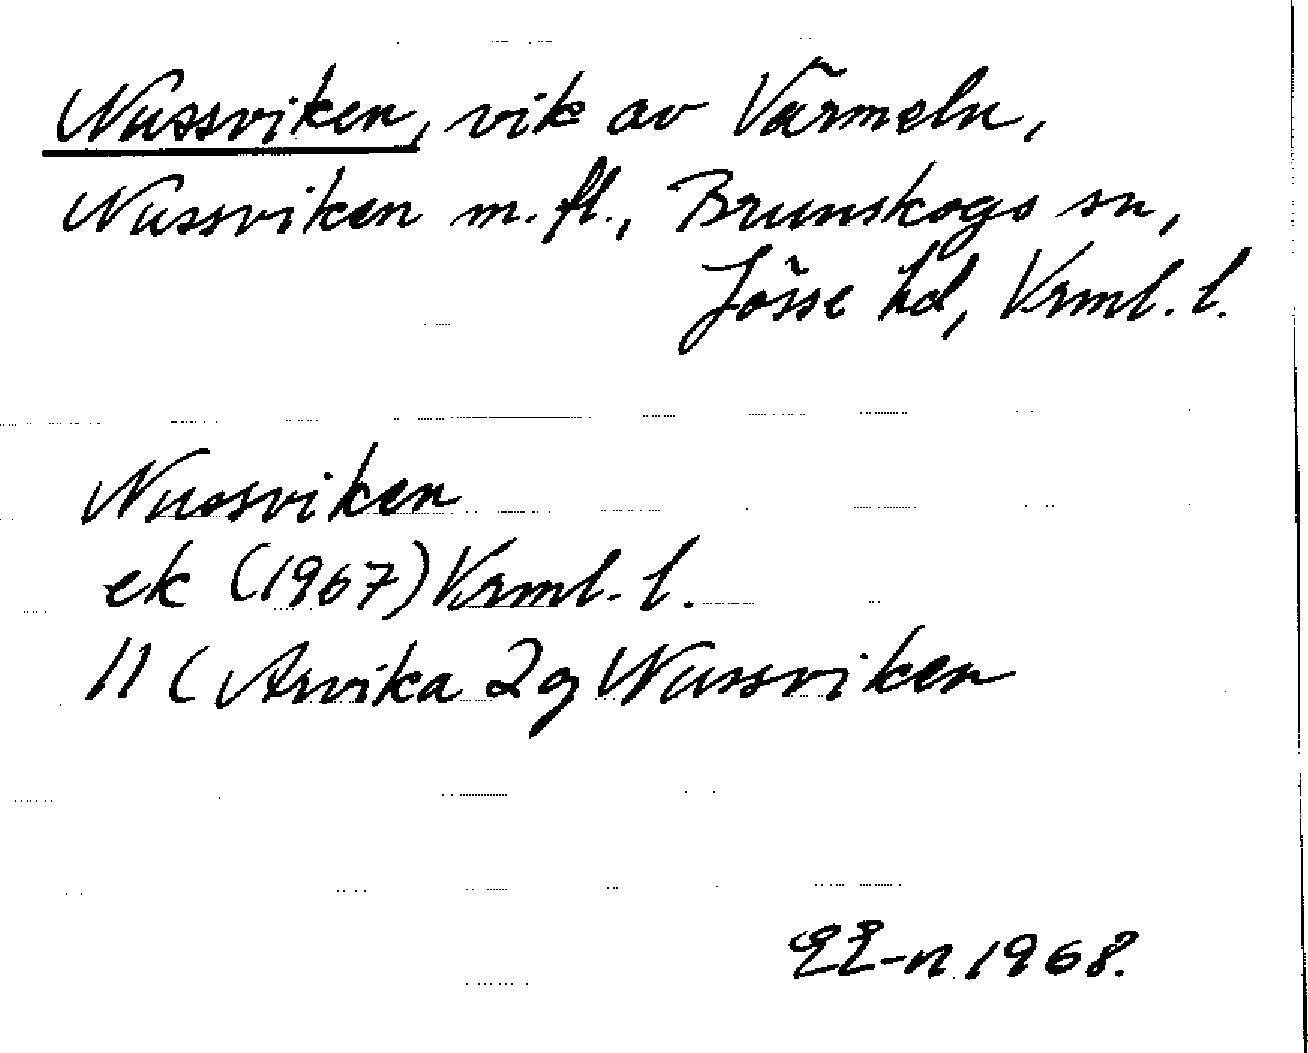 Nussviken, vik av Värmeln,
Nussviken m. fl., Brunskogs sn,
Jösse hd, Vrml. l.
Nussviken
ek (1967) Vrml. l.
11 C Arvika 2 g Nussviken
1968.